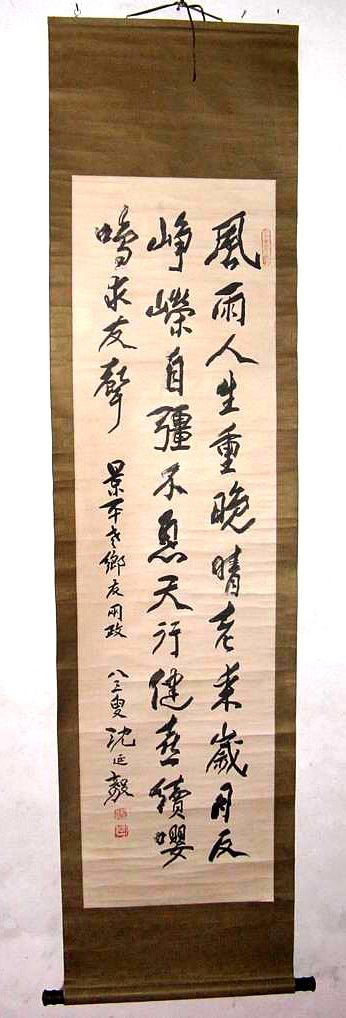 風雨人生重晚晴老來歲月反
崢嶸自彊不息天行健喜續嚶
鳴求友聲
景平老鄉友兩政
八三叟沈延毅